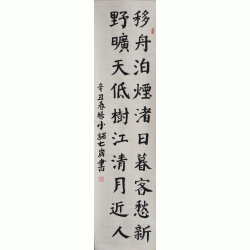 移舟泊煙渚日暮客愁新
野曠天低樹江清月近人
辛丑春 書